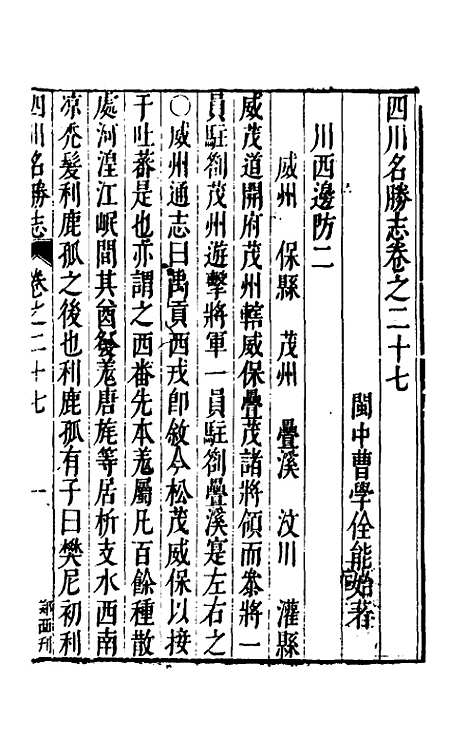 四川名勝志卷之二十七
閩中曹學佺能始著
川西邊防二
威州　保縣　茂州　疊溪　汶川　灌縣
威茂道開府茂州轄威保疊茂諸將領而叅將一
員駐劄茂州遊擊將軍一員駐劄疊溪寔左右之
○威州通志曰禹貢西戎即敘今松茂威保以接
于吐蕃是也亦謂之西番先本羗屬凡百餘種散
處河湟江岷間其酋發羗唐旄等居析支水西南
凉禿髮利鹿孤之後也利鹿孤有子曰樊尼初利
四川名勝志　卷之二十七　一